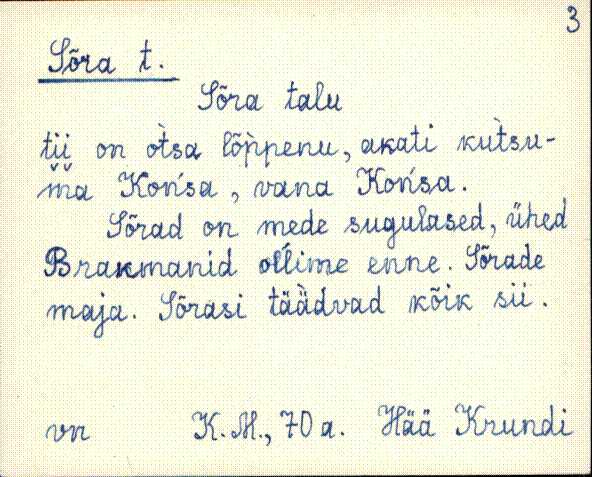 3
Sõra t.
Sõra talu
tii on òtsa lõp̀penu, akati kut̀su-
ma Końsa, vana Końsa.
Sõrad on mede sugulased, ühed
Brakmanid ollime enne. Sõrade
maja. Sõrasi tää̀dvad kõik sii.
vn K. M., 70 a. Hää Krundi